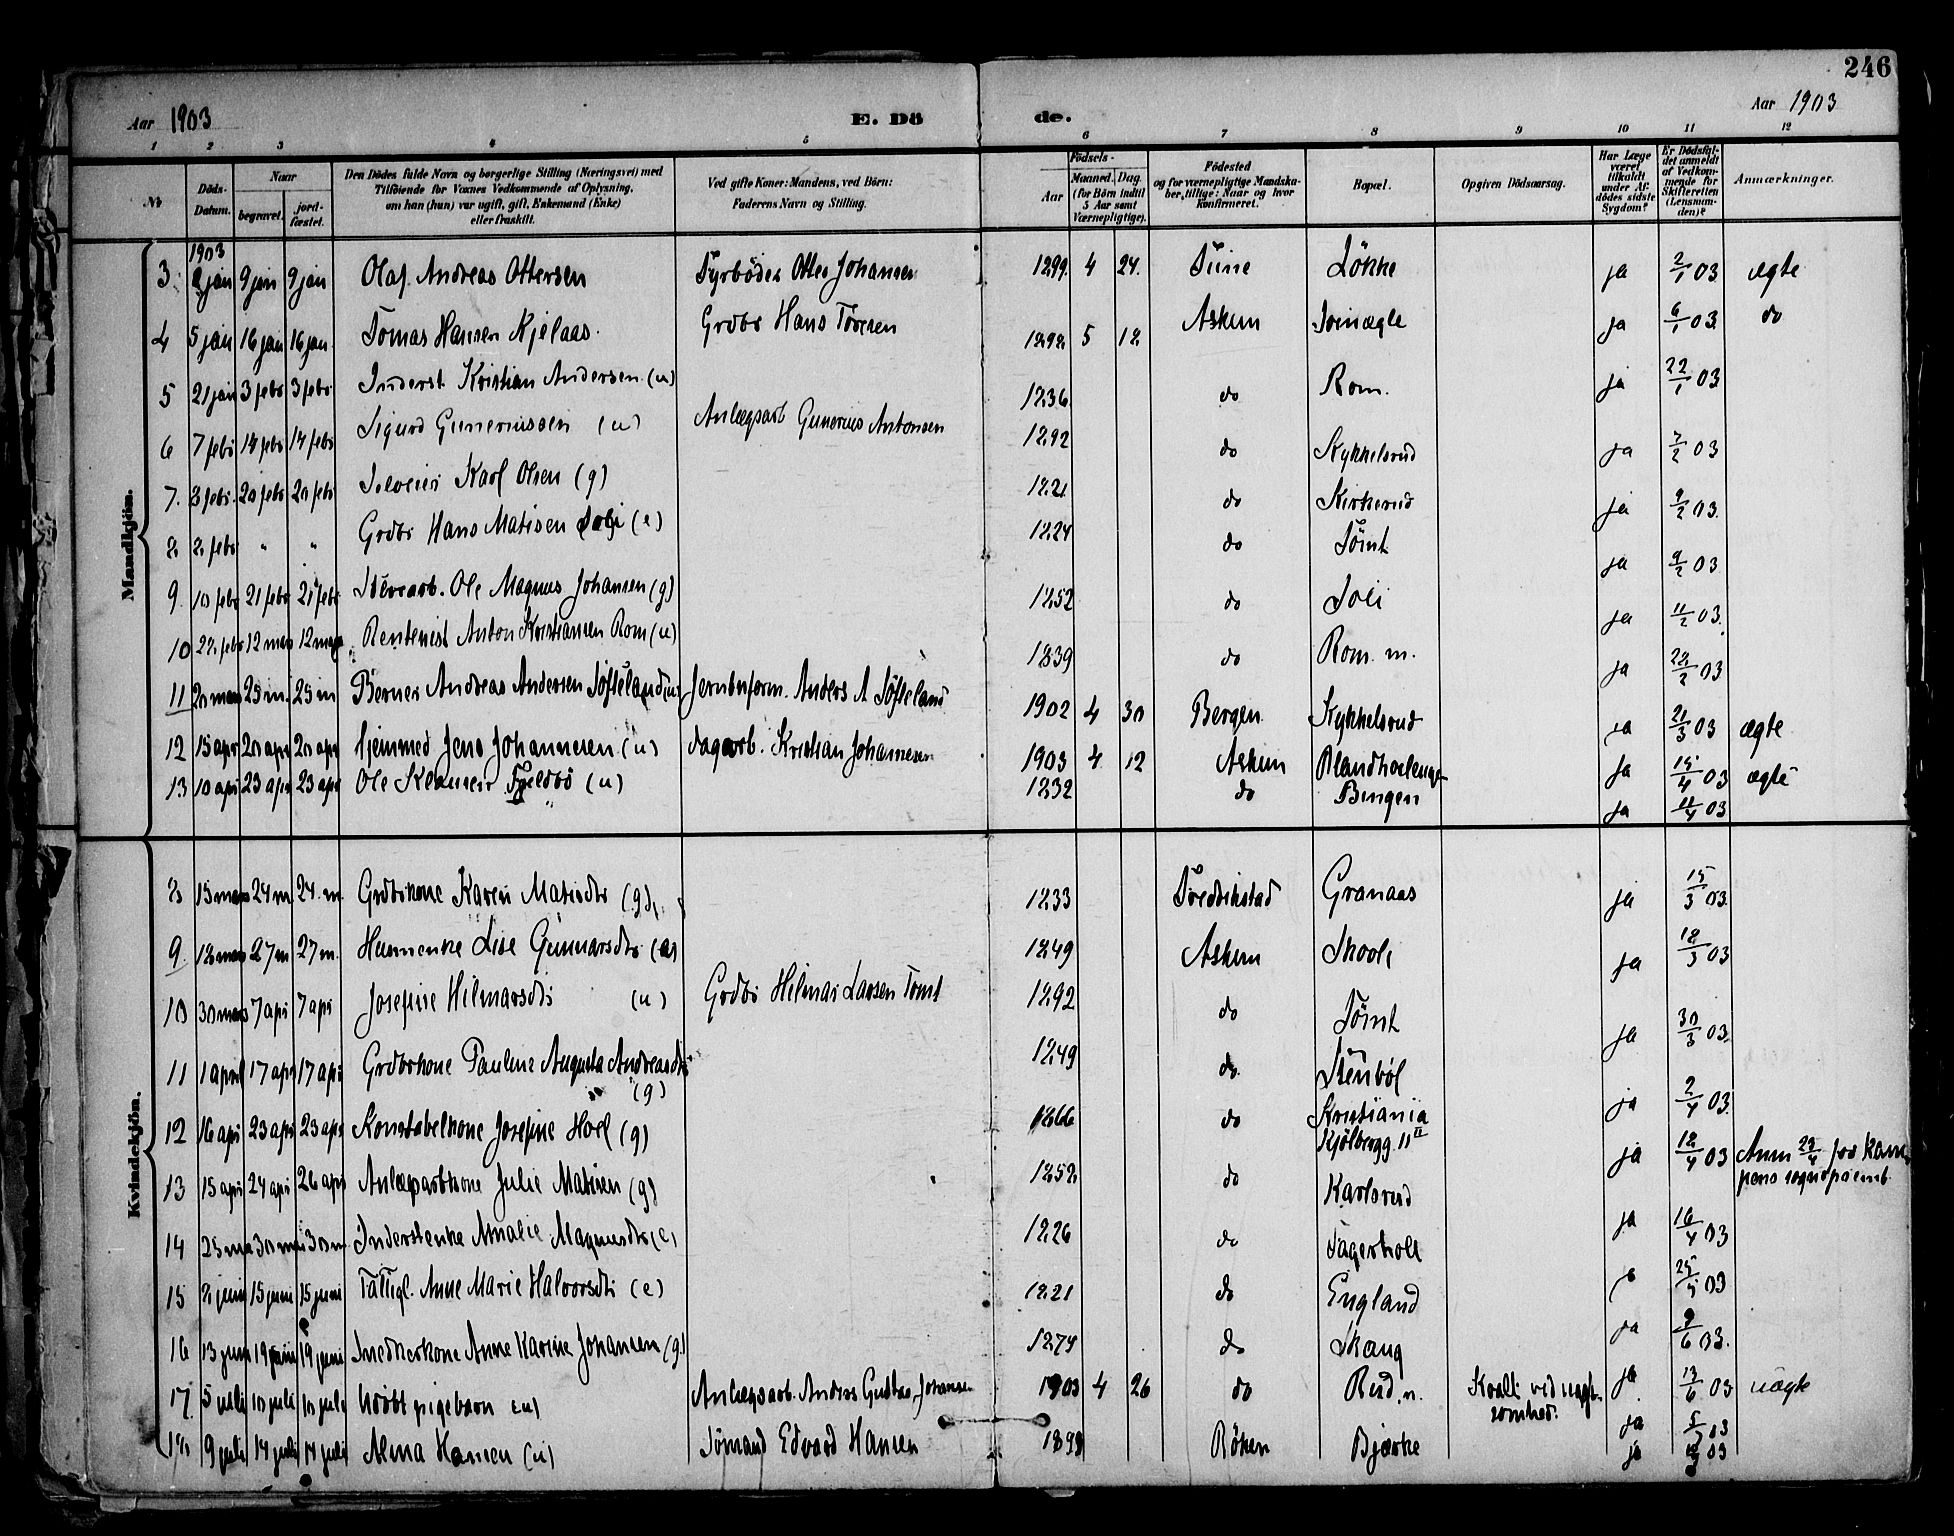 246
Aar 1903 E. Dö de. Aar 1903
1 2 3 4 5 6 7 8 9 10 11 12
№ Döds-Datum. Naar begravet. jordfæstet. Den Dödes fulde Navn og borgerlige Stilling (Næringsvei) med Tilföiende for Voxnes Vedkommende af Oplysning, om han (hun) var ugift, gift, Enkemand (Enke) eller fraskilt. Ved gifte Koner: Mandens, ved Börn: Faderens Navn og Stilling. Födsels- Aar Maaned. Dag. (for Börn indtil 5 Aar samt Værnepligtige). Födested og for værnepligtige Mandskaber, tillige: Naar og hvor konfirmeret. Bopæl. Opgiven Dödsaarsag. Har Læge været tilkaldt under Afdödes sidste Sygdom? Er Dödsfaldet anmeldt af Vedkommende for Skifteretten (Lensmanden)? Anmærkninger.
Mandkjön.
1903
3 jan 9 jan 9 jan Olaf Andreas Ottersen Fyrböder Otter Johansen 1899 4 24. Tune Lökke ja 2/1 03 ægte
4 5 jan 16 jan 16 jan Tomas Hansen Kjelaas Grdbr Hans Toresen 1898 5 18 Askim ja 6/1 03 do
5 21 jan 3 febr 3 febr Inderst Kristian Andersen (u) 1836 do Rom. ja 22/1 03
6 7 febr 14 febr 14 febr Sigurd Guneriussen (u) Anlægsarb Gunerius Antonsen 1892 do Kykkelsrud ja 7/2 03
7. 8 febr. 20 febr 20 febr Karl Olsen (g) 1821 do Kirkerud ja 9/2 03.
8 8 febr " " Grdbr Hans Matisen (e) 1824 do Tömt ja 9/2 03
9. 10 febr 21 febr 21 febr Ole Magnus Johansen (g) 1852 do ja 11/2 03.
10 22 febr 12 mars Rentenist Anton Kristiansen Rom (u) 1839 do Rom. m. ja 22/2 03
11 20 mars 25 m. 25 m Berner Andreas Andersen Söfteland (u) Jernbnform. Anders A Söfteland 1902 4 30 Bergen Kykkelsrud ja 21/3 03 ægte
12 15 apr 20 apr 20 apr Hjemmed Jens Johannesen (u) dagarb. Kristian Johannesen 1903 4 12 Askim ja 15/4 03 ægte
13 10 apr 23 apr 23 apr Ole (u) 1832 do Bingen ja 11/4 03
Kvindekjön.
8 15 mars 24 m 24. m Grdbrkone Karen Matisdtr (g) 1833 Fredrikstad Granaas ja 15/3 03.
9. 18 mars 27 m 27 m. Huusmenke Lise Gunnarsdtr 1849 Askim ja 18/3 03
10 30 mars 7 apr 7 apr Josefine Hilmarsdtr (u) Grdbr Hilmar Larsen Tomt 1892 do Tömt ja 30/3 03.
11 1 april 17 apr 17 apr Grdbrkone Pauline Augusta Andreasdtr
(g) 1849 do Stenböl ja 2/4 03.
12 16 apr 23 apr 23 apr Konstabelkone Josefine Hoel (g) 1866 do Kristiania
Kjölbergg. 11 II ja 18/4 03 Anm 23/4 for Kam-
pens sognepræemb.
13 15 apr 24 apr 26 apr Anlægsarbkone Julie Matisen (g) 1852 do Karlsrud ja 16/4 03
14 25 30 m 30 m Inderstenke Amalie Magnusdtr (e) 1826 do Fagerholt ja 25/5 03
15 juni 15 juni 15 juni Fattigl. Anne Marie Halvorsdtr (e) 1821 do England ja 9/6 03.
16 13 juni 19 juni 19 juni Snedkerkone Anne Karine Johansen (g) 1874 do Skaug ja 13/6 03
17. 5 juli 10 juli 10 juli Udöbt pigebarn (u) Anlægsarb. Anders Gustav Johansen 1903 4 26 do Rud. n. Kvalt ved uagt-
somhed. ja 5/7 03 uægte
18 9 juli 14 juli 14 juli Alma Hansen (u) Sömand Edvard Hansen 1899 Röken Bjerke ja 03